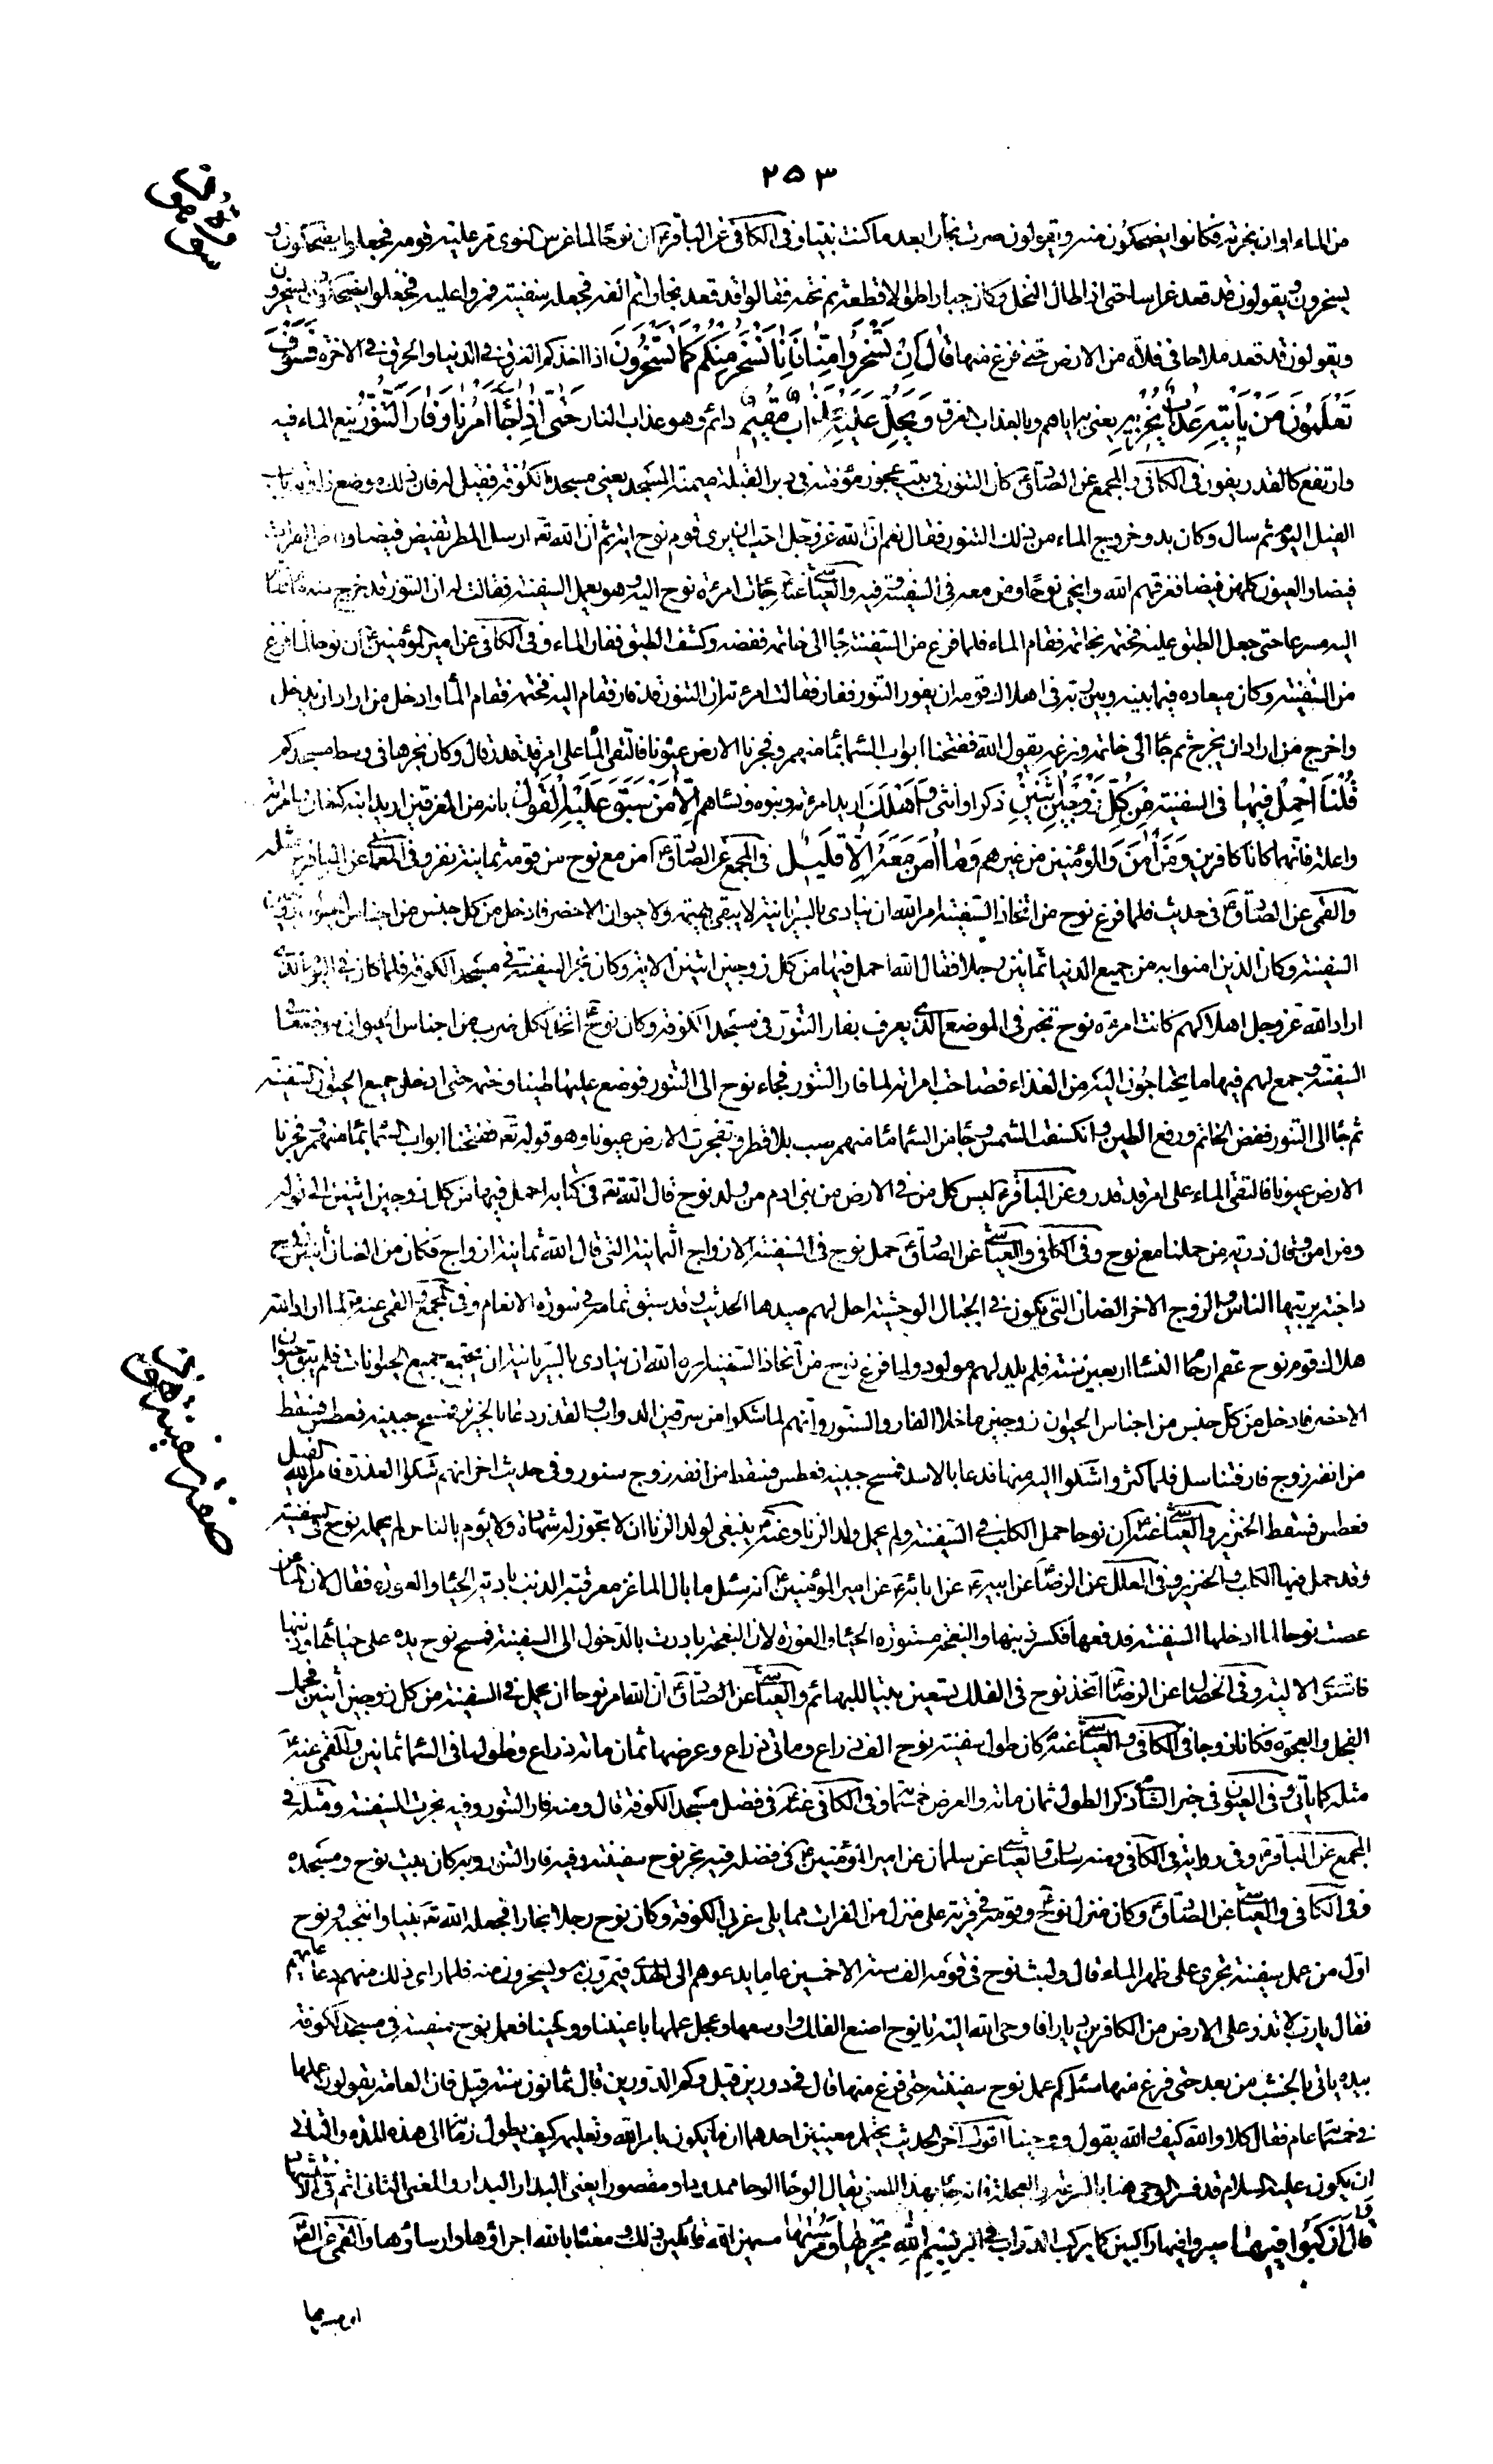 ٢٥٣
من الماء او ان عزته فكانوا يضحكون منه ويقولون صرت نجارا بعد ما كنت نبيا وفى الكافى عن الباقر ان نوحا لما غرس النوى مر عليه قومه فجعلوا يضحكون و
يسخرون ويقولون قد قعد غراسا حتى اذا طال النخل وكان جبارا طوالا قطعه ثم نحته فقالوا قد قعد نجارا ثم الفه فجعله سفينة فمروا عليه فجعلوا يضحكون ويسخرون
ويقولون قد قعد ملاحا فى فلاة من الارض حتى فرغ منها قال ان تسخروا منا فانا نسخر منكم كما تسخرون اذا اخذكم الغرق فى الدنيا والحرق فى الاخرة فسوف
تعلمون من ياتيه عذاب يخزيه يعنى به اياهم وبالعذاب الغرق ويحل عليه عذاب مقيم دائم وهو عذاب النار حتى اذا جاء امرنا وفار التنور نبع الماء فيه
وارتفع كالقدر يفور فى الكافى والمجمع عن الصادق كان التنور فى بيت عجوز مؤمنة فى دبر القبلة ميمنة المسجد يعنى مسجد الكوفة فقيل له فان ذلك موضع زاوية باب
الفيل اليوم ثم سال وكان بدو خروج الماء من ذلك التنور فقال نعم ان الله عز وجل احب ان يرى قوم نوح اية ثم ان الله تعه ارسل المطر يفيض فيضا و
فيضا والعيون كلهن فيضا فغرقهم الله وانجى نوحا ومن معه فى السفينة وفيه والعياشى عنه جائت امرءة نوح اليه وهو يعمل السفينة فقالت له ان التنور قد خرج منه ماء فقام
اليه مسرعا حتى جعل الطبق عليه فختمه بخاتمه فقام الماء فلما فرغ من السفينة جاء الى خاتمه ففضه وكشف الطبق ففار الماء وفى الكافى عن امير المؤمنين ان نوحا لما فرغ
من السفينة وكان ميعاده فيما بينه وبين ربه فى اهلاك قومه ان يفور التنور ففار فقالت امرءته ان التنور قد فار فقام اليه فختمه فقام الماء وادخل من اراد ان يدخل
واخرج من اراد ان يخرج ثم جاء الى خاتمه ونزعه يقول الله ففتحنا ابواب السماء بماء منهمر وفجرنا الارض عيونا فالتقى الماء على امر قد قدر قال وكان نجرها فى وسط مسجدكم
قلنا احمل فيها فى السفينة من كل زوجين اثنين ذكرا وانثى واهلك اريد امرءته وبنوه ونساءهم الا من سبق عليه القول بانه من المغرقين اريد ابنه كنعان وامرءته
واعلة فانهما كانا كافرين ومن امن والمؤمنين من غيرهم وما امن معه الا قليل فى المجمع عن الصادق امن مع نوح من قومه ثمانية نفر وفى المعانى عن الباقر مثله
والقمى عن الصادق فى حديث فلما فرغ نوح من اتخاذ السفينة امره الله ان ينادى بالسريانية لا يبقى بهيمة ولا حيوان الا حضر فادخل من كل جنس من اجناس الحيوان زوجين
السفينة وكان الذين امنوا به من جميع الدنيا ثمانين رجلا فقال الله احمل فيها من كل زوجين اثنين الاية وكان نجر السفينة فى مسجد الكوفة فلما كان فى اليوم الذى
اراد الله عز وجل اهلاكهم كانت امرءة نوح تخبز فى الموضع الذى يعرف بفار التنور فى مسجد الكوفة وكان نوح اتخذ لكل ضرب من اجناس الحيوان موضعا فى
السفينة وجمع لهم فيها ما يحتاجون اليه من الغذاء فصاحت امراته لما فار التنور فجاء نوح الى التنور فوضع عليها طينا وختمه حتى ادخل جميع الحيوان السفينة
ثم جاء الى التنور ففض الخاتم ورفع الطين وانكسفت الشمس وجاء من السماء ماء منهمر صب بلا قطر وتفجرت الارض عيونا وهو قوله تعه ففتحنا ابواب السماء بماء منهمر وفجرنا
الارض عيونا فالتقى الماء على امر قد قدر وعن الباقر ليس كل من فى الارض من بنى ادم من ولد نوح قال الله تعه فى كتابه احمل فيها من كل زوجين اثنين الى قوله
ومن امن وقال ذرية من حملنا مع نوح وفى الكافى والعياشى عن الصادق حمل نوح فى السفينة الازواج الثمانية التى قال الله ثمانية ازواج فكان من الضان اثنين زوج
داجنة يربيها الناس والزوج الاخر الضان التى تكون فى الجبال الوحشية احل لهم صيدها الحديث وقد سبق تمامه فى سورة الانعام وفى المجمع والقمى عنه لما اراد الله
هلاك قوم نوح عقم ارحام النساء اربعين سنة فلم يلد لهم مولود ولما فرغ نوح من اتخاذ السفينة امره الله ان ينادى بالسريانية ان يجتمع جميع الحيوانات فلم يبق حيوان
الا حضر فادخل من كل جنس من اجناس الحيوان زوجين ما خلا الفار والسنور وانهم لما شكوا من سرقين الدواب والقذر دعا بالخنزير فمسح جبينه فعطس فسقط
من انفه زوج فار فتناسل فلما كثر واشكوا اليه منها فدعا بالاسد فمسح جبينه فعطس فسقط من انفه زوج سنور وفى حديث اخر انهم شكوا العذرة فامر الله الفيل
فعطس فسقط الخنزير والعياشى عنه ان نوحا حمل الكلب فى السفينة ولم يحمل ولد الزنا وعنه ينبغى لولد الزنا ان لا تجوز له شهادة ولا يؤم بالناس لم يحمله نوح فى السفينة
وقد حمل فيها الكلب والخنزير وفى العلل عن الرضا عن ابيه عن ابائه عن امير المؤمنين انه سئل ما بال الماعز معرقبة الذنب بادية الحياء والعورة فقال لان الماعز
عصت نوحا لما ادخلها السفينة فدفعها فكسر ذنبها والنعجة مستورة الحياء والعورة لان النعجة بادرت بالدخول الى السفينة فمسح نوح يده على حيائها وذنبها
فاستوت الالية وفى الخصال عن الرضا اتخذ نوح فى الفلك تسعين بيتا للبهائم والعياشى عن الصادق ان الله امر نوحا ان يحمل فى السفينة من كل زوجين اثنين فحمل
الفحل والعجوة فكانا زوجا فى الكافى والعياشى عنه كان طول سفينة نوح الف ذراع ومائتى ذراع وعرضها ثمان مائة ذراع وطولها فى السماء ثمانين والقمى عنه
مثله كما ياتى وفى العيون فى خبر الشامى ذكر الطول ثمان مائة والعرض خمسمائة وفى الكافى عنه فى فضل مسجد الكوفة قال ومنه فار التنور وفيه نجرت السفينة ومثله فى
المجمع عن الباقر وفى رواية فى الكافى ومنه سارت والعياشى عن سلمان عن امير المؤمنين فى فضله فيه نجر نوح سفينته وفيه فار التنور وبه كان بيت نوح ومسجده
وفى الكافى والعياشى عن الصادق وكان منزل نوح وقومه فى قرية على منزل من الفرات مما يلى غربى الكوفة وكان نوح رجلا نجارا فجعله الله تعه نبيا وانتجبه ونوح
اول من عمل سفينة تجرى على ظهر الماء قال ولبث نوح فى قومه الف سنة الا خمسين عاما يدعوهم الى الهدى فيمرون به ويسخرون منه فلما راى ذلك منهم دعا عليهم
فقال يا رب لا تذر على الارض من الكافرين ديارا فاوحى الله اليه يا نوح اصنع الفلك واوسعها وعجل عملها باعيننا ووحينا فعمل نوح سفينته فى مسجد الكوفة
بيده ياتى بالخشب من بعد حتى فرغ منها سئل كم عمل نوح سفينته حتى فرغ منها قال فى دورين قيل وكم الدورين قال ثمانون سنة قيل فان العامة يقولون عملها
فى خمسمائة عام فقال كلا والله كيف والله يقول ووحينا اقول اخر الحديث يحتمل معنيين احدهما ان ما يكون بامر الله وتعليمه كيف يطول زمانا الى هذه المدة والثانى
ان يكون عليه السلام قد فسر الوحى هنا بالسرعة والعجلة فانه جاء بهذا المعنى يقال الوحا الوحا ممدودا ومقصورا يعنى البدار البدار والمعنى الثانى اتم فى الاستشهاد
وقال اركبوا فيها صيروا فيها راكبين كما يركب الدواب فى البر بسم الله مجريها ومرسيها مسمين الله قائلين ذلك ومعناه بالله اجراؤها وارساؤها والقمى عن الصادق